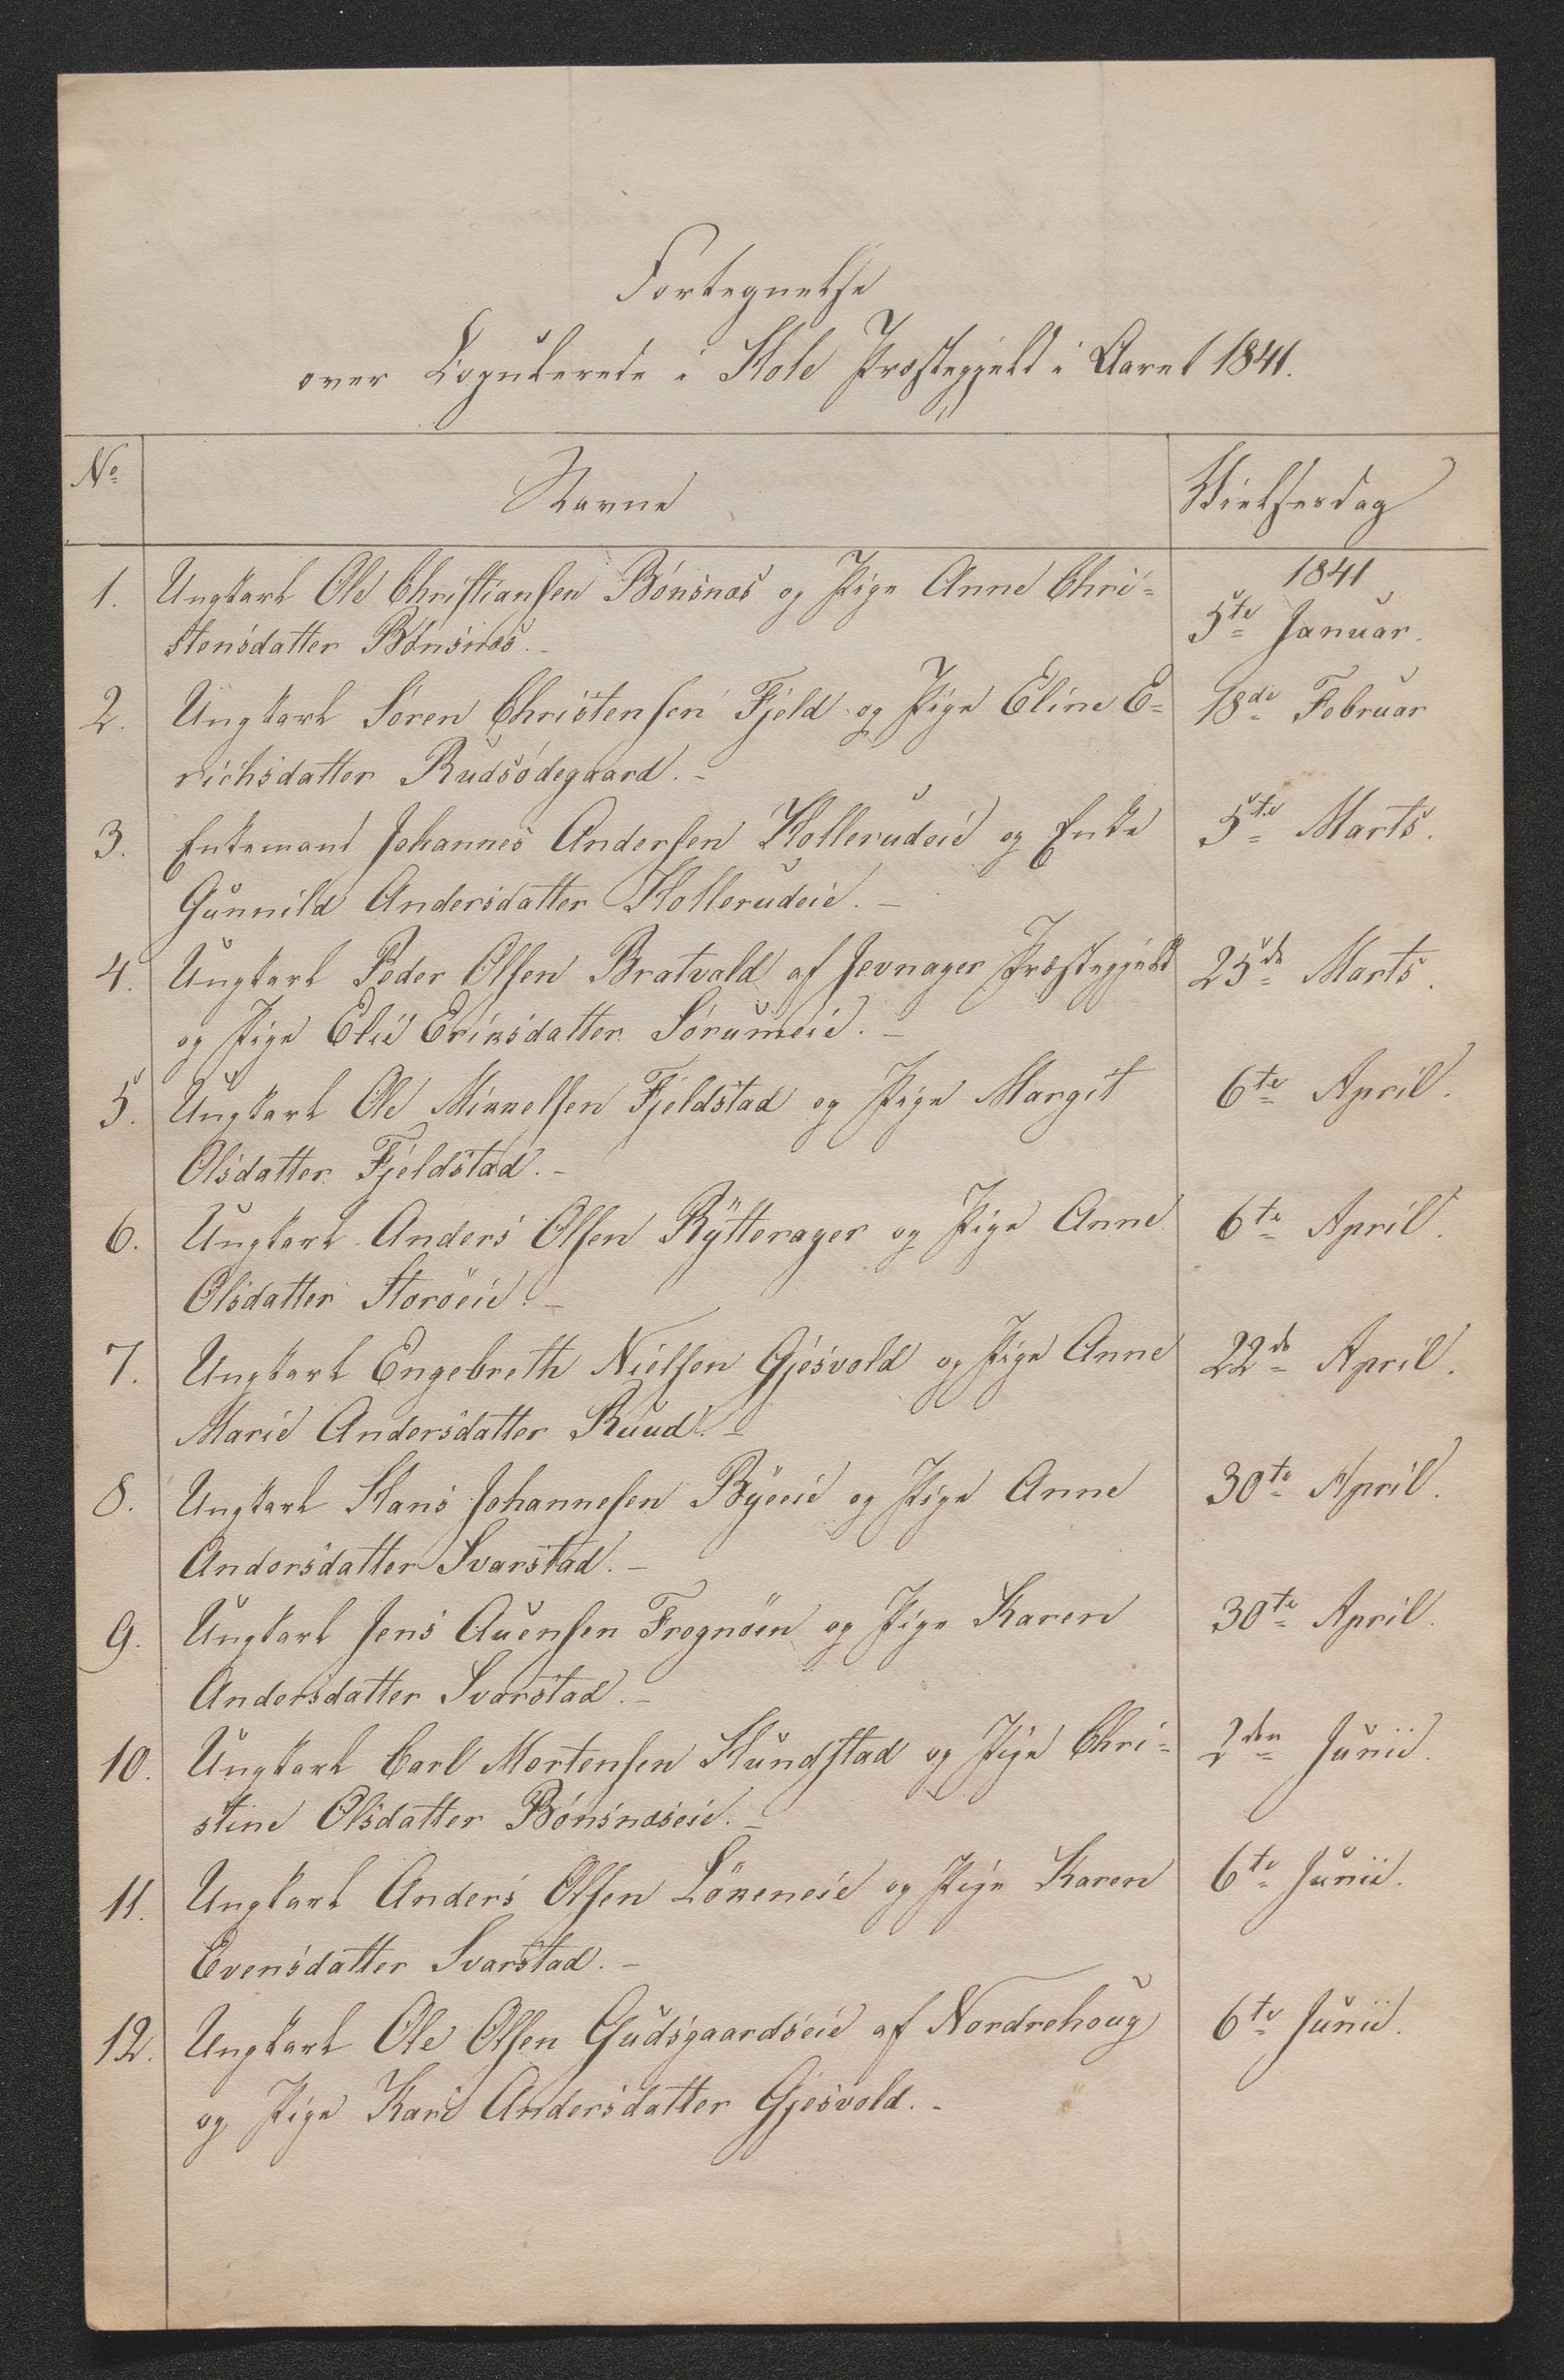 Fortegnelse
over Copulerede i Hole Præstegjeld i Aaret 1841.
No Navne Vielsesdag
1841
1. Ungkarl Ole Christiansen Bönsnæs og Pige Anne Chri= 5te Januar.
stensdatter Bönsnæs. -
2. Ungkarl Sören Christensen Fjeld og Pige Eline E= 18de Februar
richsdatter Rudsödegaard. -
3. Enkemand Johannes Andersen Hollerudeie og Enke 5te Marts.
Gunnild Andersdatter Hollerudeie. -
4. Ungkarl Peder Olsen Bratvald af Jevnager Præstegjeld 25de Marts.
og Pige Elie Eriksdatter Sörumeie. -
5. Ungkarl Ole Mikkelsen Fjeldstad og Pige Margit 6te April.
Olsdatter Fjeldstad. -
6. Ungkarl Anders Olsen Rytterager og Pige Anne 6te April.
Olsdatter Storöeie. -
7. Ungkarl Engebreth Nielsen Gjesvold og Pige Anne 22de April.
Marie Andersdatter Ruud. -
8. Ungkarl Hans Johannesen Byeeie og Pige Anne 30te April.
Andersdatter Svarstad. -
9. Ungkarl Jens Auensen Frognöen og Pige Karen 30te April.
Andersdatter Svarstad. -
10. Ungkarl Carl Mortensen Hundstad og Pige Chri= 2den Junii.
stine Olsdatter Bönsnæseie. -
11. Ungkarl Anders Olsen Lökeneie og Pige Karen 6te Junii.
Evensdatter Svarstad. -
12. Ungkarl Ole Olsen Gudsgaardseie af Nordrehoug 6te Junii.
og Pige Kari Andersdatter Gjesvold. -